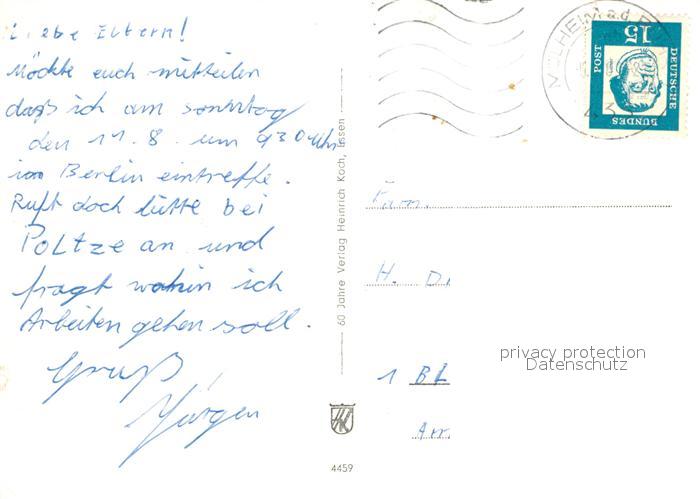 Liebe Eltern!
Möchte euch mitteilen
daß ich am sonntag
den 11.8. um 930 Uhr
in Berlin eintreffe.
Ruft doch bitte bei
Poltze an und
fragt wohin ich
Arbeiten gehen soll.
Gruß,
Jürgen
60 Jahre Verlag Heinrich Koch, Essen
4459
MÜLHEIM a.d. R
15
POST
DEUTSCHE
BUNDES
Fam.
H. D.
1 BL
privacy protection
Datenschutz